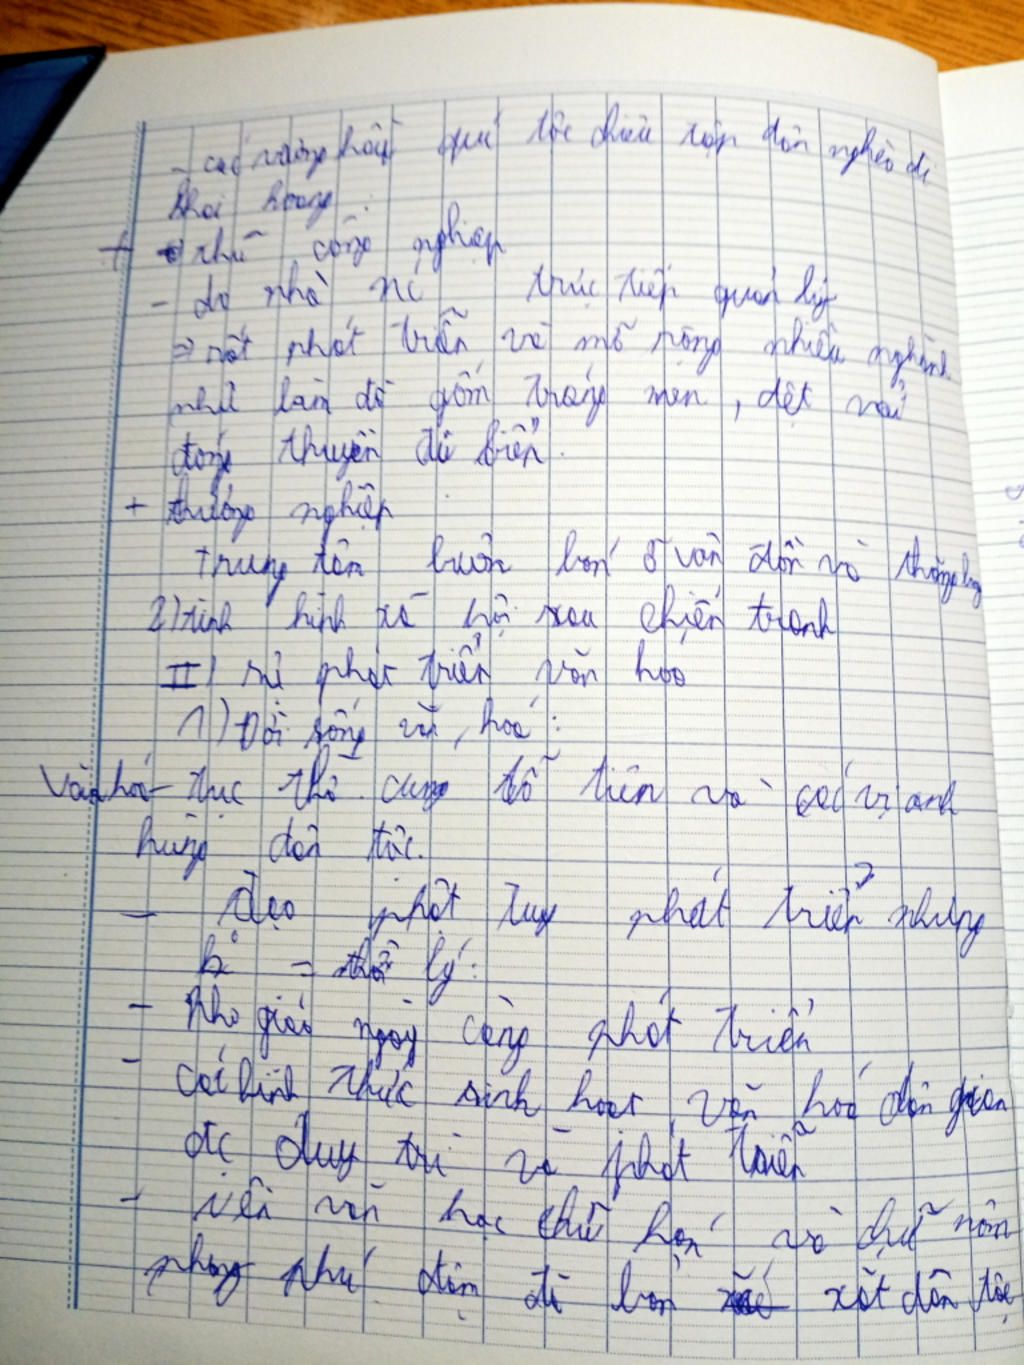 - các vương hầu quí tộc chiêu tập dân nghèo đi
khai hoang
+ thủ công nghiệp
- do nhà nc trực tiếp quản lý
=> rất phát triển và mở rộng nhiều nghành
như làm đồ gốm tráng men, dệt vải
đóng thuyền đi biển.
+ thương nghiệp
trung tâm buôn bán ở vân đồn và thăng long
2) tình hình xã hội sau chiến tranh
II) sự phát triển văn hoá
1) Đời sống văn, hoá:
Văn hoá - tục thờ cúng tổ tiên và các vị anh
hùng dân tộc.
- Đạo phật tuy phát triển nhưng
k = thời lý:
- Nho giáo ngày càng phát triển
- các hình thức sinh hoạt văn hoá dân gian
đc duy trì và phát triển
- nền văn học chữ hán và chữ nôm
phong phú đậm đà bản xắt dân tộc